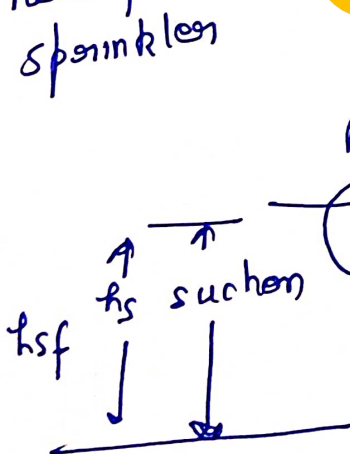 sprinkler
hs suchon
hsf